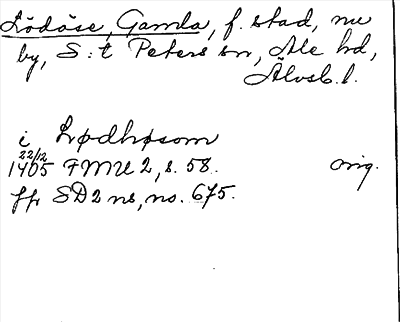 Lödöse, Gamla, f. stad, nu
by, S:t Peters sn, Ale hd,
Älvsb. l.
i Lødhøsom
22/12
1405 FMU 2, s. 58. orig.
ff SD 2 ns, no. 675.